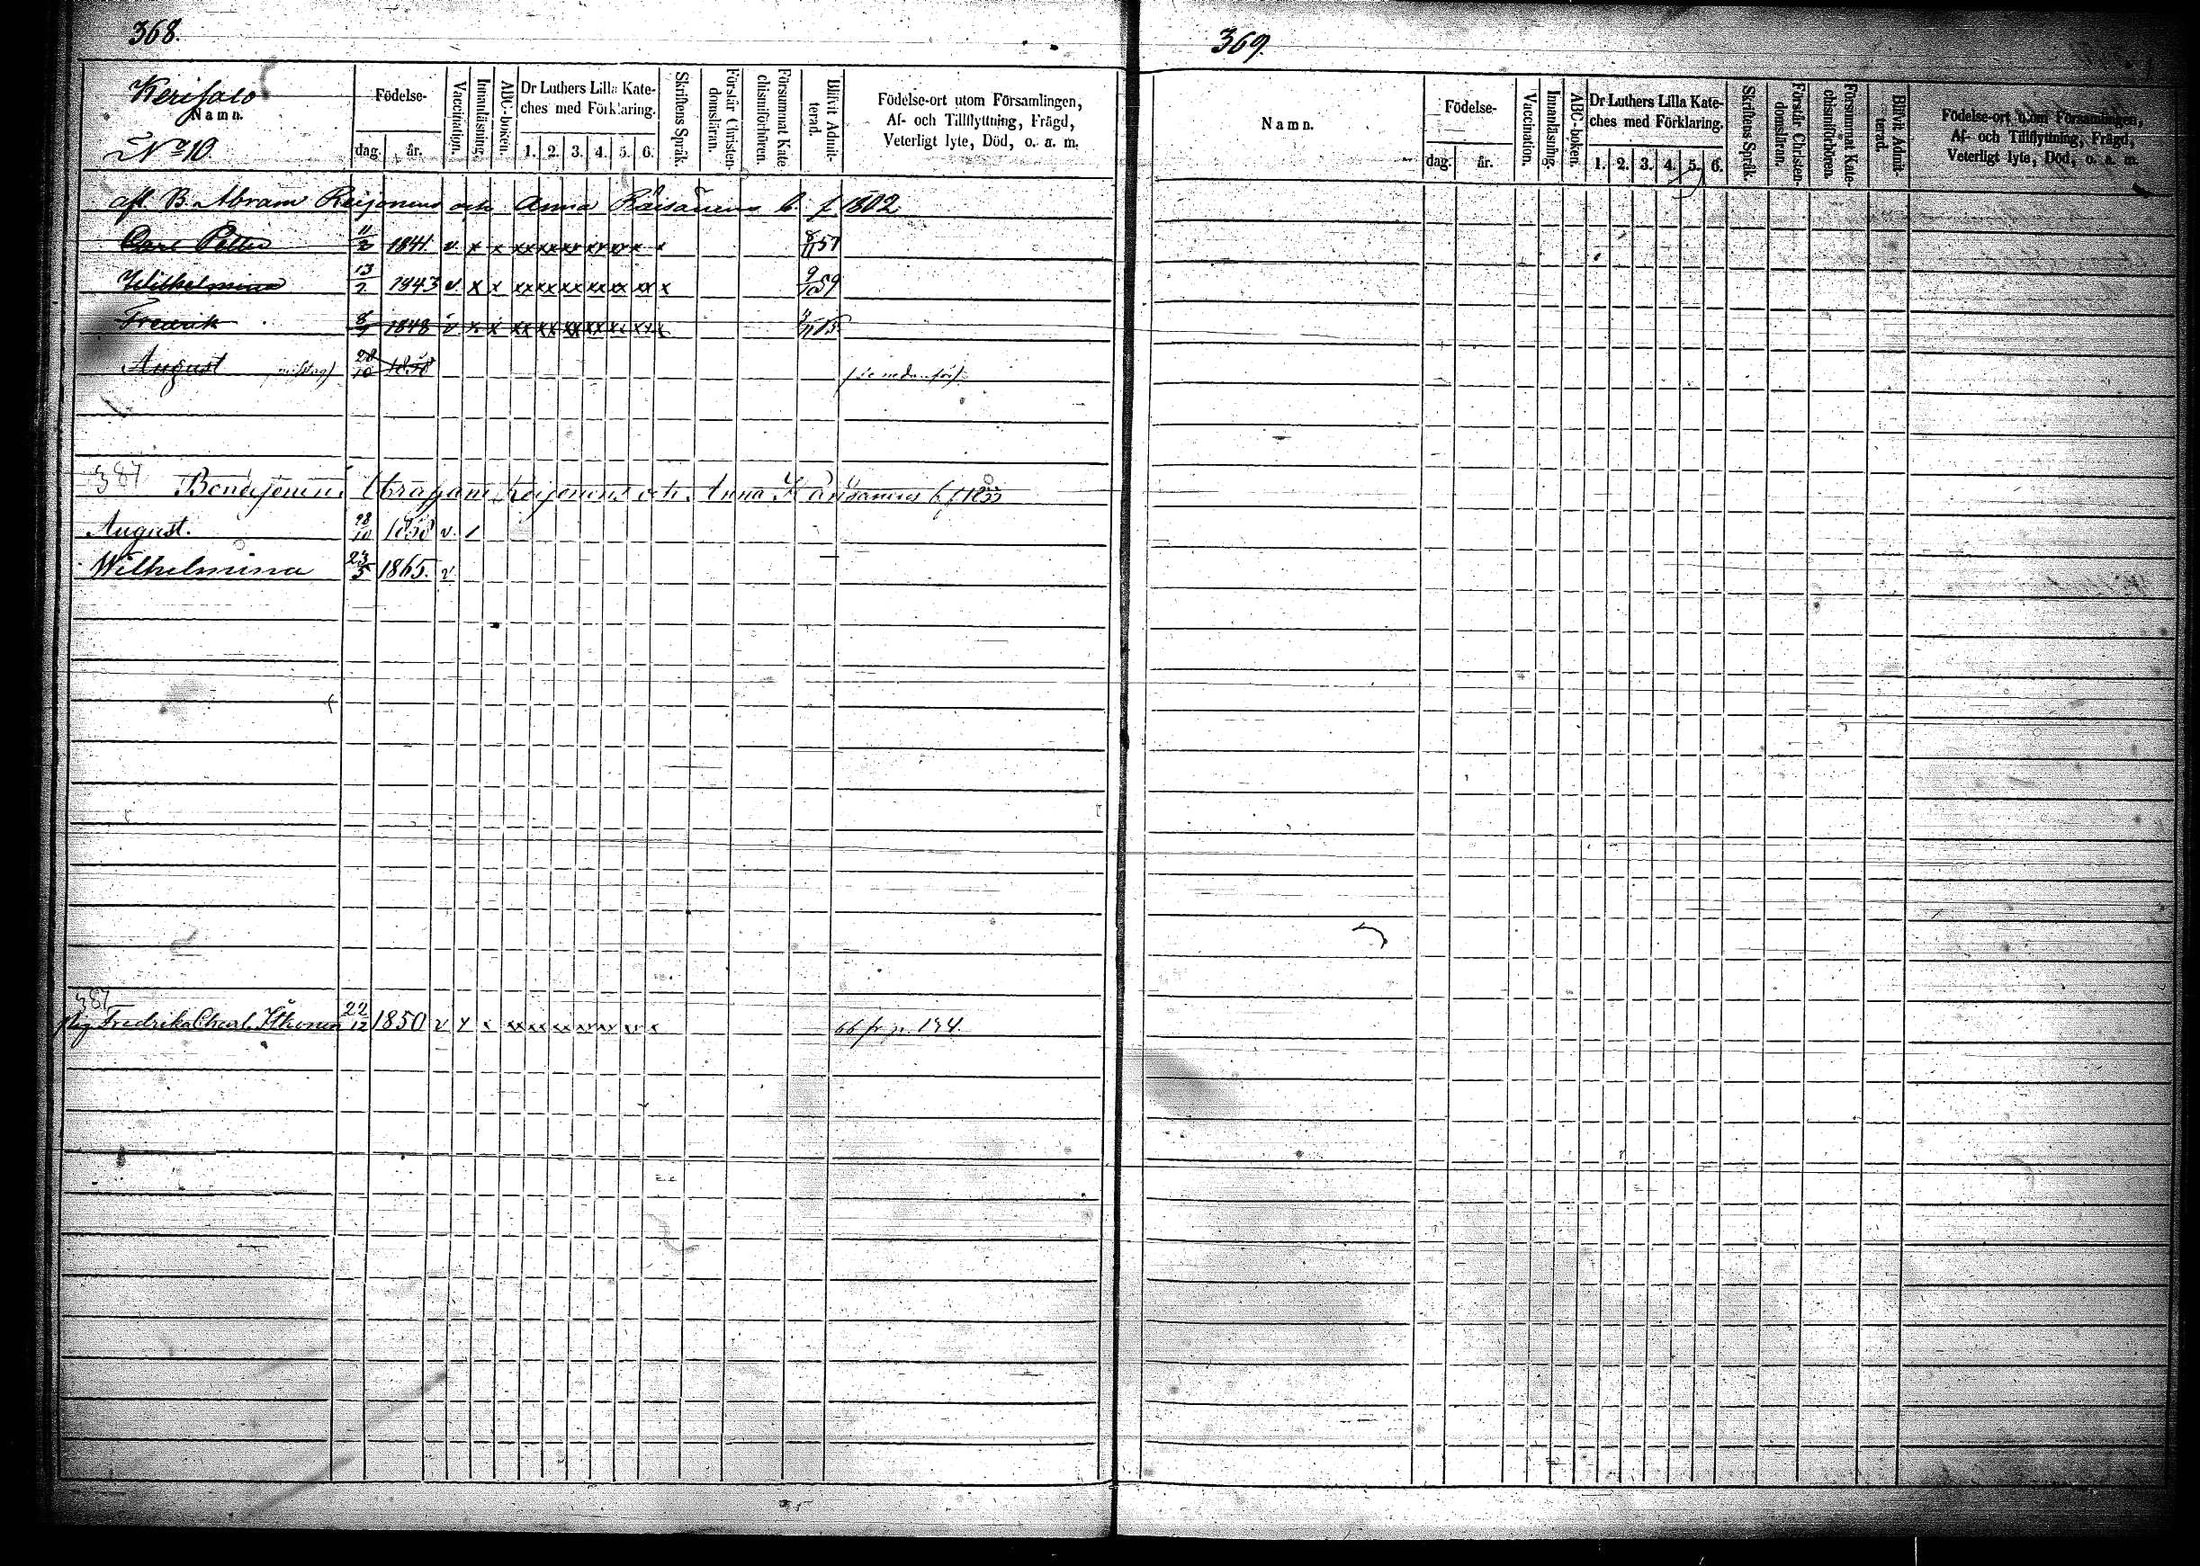 368.
Kerisalo
Namn.
No 10.
Födelse-
dag. år.
Vaccination.
Innanläsning.
ABC-boken.
Dr Luthers Lilla Kate-
ches med Förklaring.
1. 2. 3. 4. 5. 6.
Skriftens Språk.
Förstår Christen-
domsläran.
Försummat Kate-
chismiförhören.
Blifvit Admit-
terad.
Födelse-ort utom Församlingen,
Af- och Tillflyttning, Frägd,
Veterligt lyte, Död, o. a. m.
afl. B. Abram Reijonens och Anna Räisänens b. f 1802
Carl Petter 11/2 1841. v x x xx xx xx xx xx x x 8/11 57
Wilhelmina 13/2 1843 v x x xx xx xx xx xx xx x 9/10 59
Fredrik 8/9 1848 v x x xx xx xx xx xx xx x
August misstag 28/10 1858 se nedanför
387
Bonden Abraham Reijonens och Anna Räisänens b. f
August. 28/10 1858 v. 1
Wilhelmina 23/5 1865. v
387
pig. Fredrika Charl. Itkonen 22/12 1850 v x x xx xx xx xx xx xx x 66 fr. p. 194.
369.
Namn.
Födelse-
dag. år.
Vaccination.
Innanläsning.
ABC-boken.
Dr Luthers Lilla Kate-
ches med Förklaring.
1. 2. 3. 4. 5. 6.
Skriftens Språk.
Förstår Christen-
domsläran.
Försummat Kate-
chismiförhören.
Blifvit Admit-
terad.
Födelse-ort utom Församlingen,
Af- och Tillflyttning, Frägd,
Veterligt lyte, Död, o. a. m.